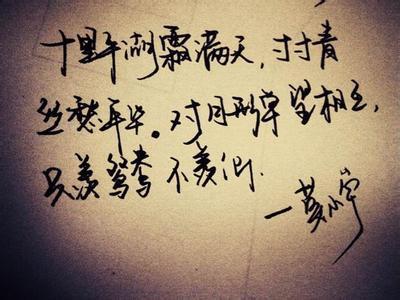 十里平湖霜满天,寸寸青
丝愁年华。对月形单望相互,
只羡鸳鸯不羡仙.
—黄小宇